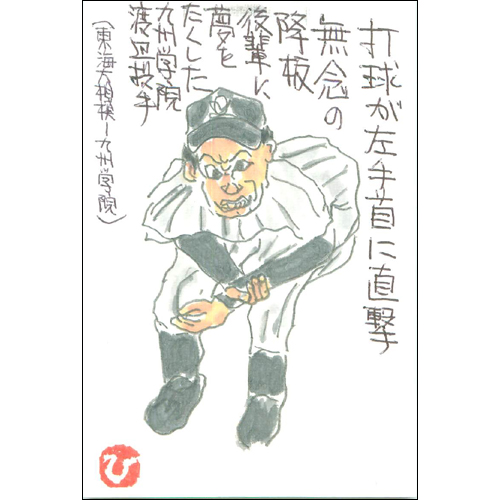 打球が左手首に直撃
無念の
降板
後輩に
夢を
たくした
九州学院
渡辺投手
(東海大相模ー九州学院)
ひ